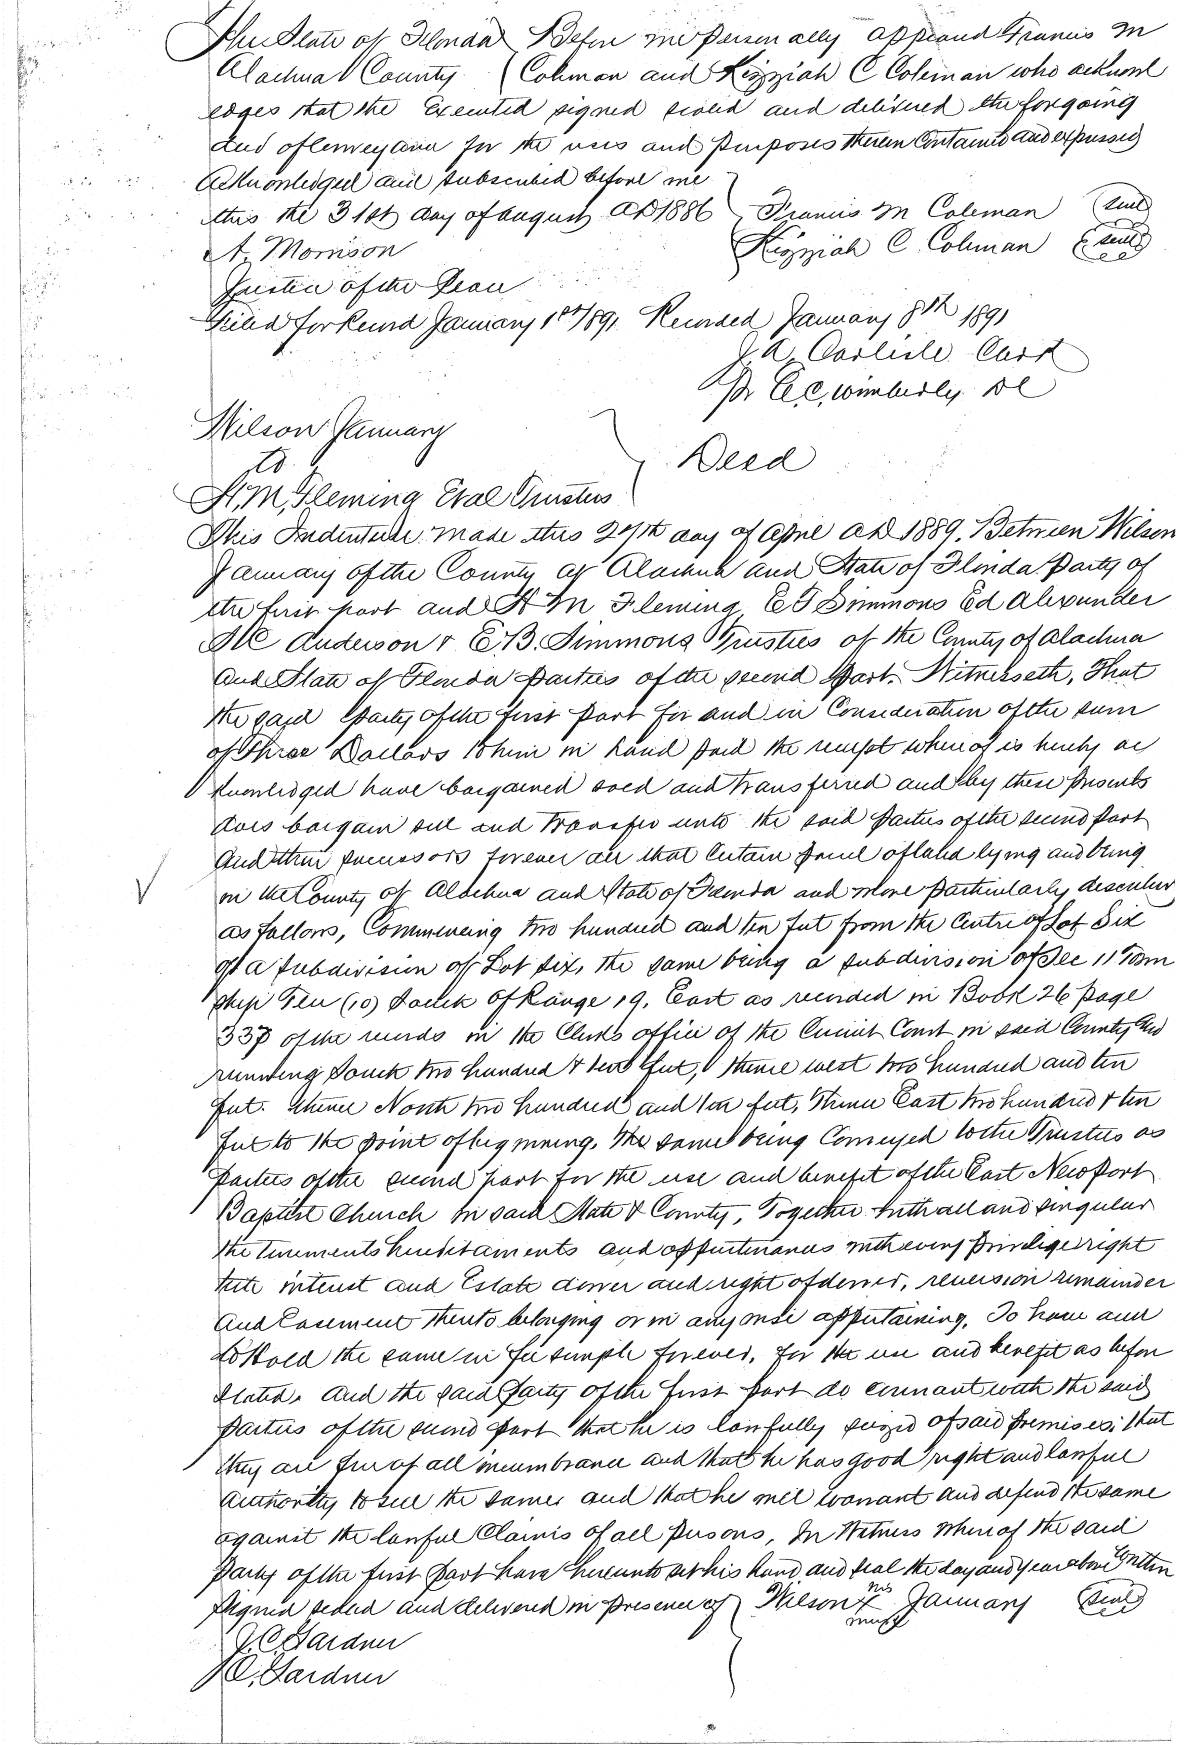 The State of Florida } Before me personally appeared Francis M
Alachua County } Coleman and Kizziah C Coleman who acknowl
edges that the Executed signed sealed and delivered the forgoing
deed of conveyance for the uses and purposes therein contained and expressed
Acknowledged and subscribed before me
this the 31st day of August AD 1886 } Francis M Coleman (seal)
A. Morrison Kizziah C Coleman (seal)
Justice of the Peace
Filed for Record January 1st 1891 Recorded January 8th 1891
J.A. Carlisle Clerk
Pr E.C. Wimberly DC
Wilson January
to } Deed
H.M. Fleming Et al Trustees
This Indenture made this 27th day of April AD 1889. Between Wilson
January of the County of Alachua and State of Florida Party of
the first part and H M Fleming E T Simmons Ed Alexander
Anderson & E.B. Simmons Trusties of the County of Alachua
and State of Florida parties of the second Part. Witnesseth, That
the said party of the first part for and in Consideration of the sum
of Three Dollars to him in hand paid the receipt where of is hereby ac
knowledged have bargained sold and transferred and by these presents
does bargain sell and transfer unto the said parties of the second part
and their successors forever all that certain parcel of land lying and being
in the County of Alachua and State of Florida and more particularly described
as follows, Commencing two hundred and ten feet from the Centre of Lot Six
of a subdivision of Lot six, the same being a subdivision of Sec 11 Town
ship Ten (10) South of Range 19. East as recorded in Book 26 page
of the records in the Clerks office of the Circuit Court in said County and
running South two hundred & ten feet, thence west two hundred and ten
feet. thence North two hundred and ten feet, thence East two hundred & ten
feet to the point of beginning. The same being Conveyed to the Trustees as
parties of the second part for the use and benefit of the East Newport
Baptist Church in said State & County, Together with all and singular
the tenements hereditaments and appurtenances with every privilege right
title interest and Estate dower and right of dower, reversion remainder
and Easement thereto belonging or in any wise appertaining, To have and
to Hold the same in fee simple forever, for the use and benefit as before
stated. And the said Party of the first part do covenant with the said
parties of the second part that he is lawfully seized of said premises; that
they are free of all incumbrance and that he has good right and lawful
authority to sell the same; and that he will warrant and defend the same
against the lawful Claims of all persons, In Witness where of the said
party of the first part have hereunto set his hand and seal the day and year above Written
Signed sealed and delivered in presence of } Wilson his X mark January (seal)
J. C. Gardner
C. Gardner